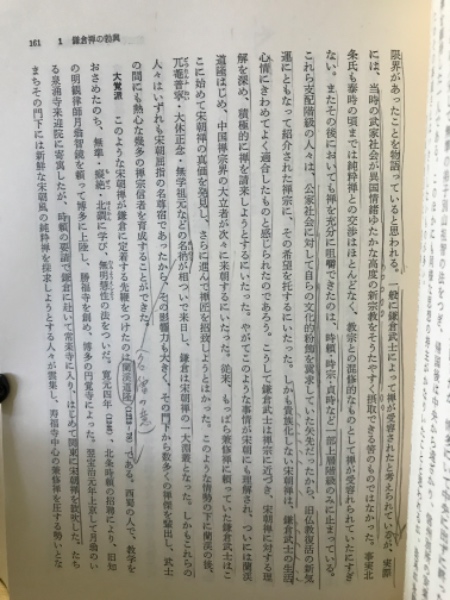 161　1　鎌倉禅の勃興
限界があったことを物語っていると思われる。一般に鎌倉武士によって禅が受容されたと考えられているが、実際
には、当時の武家社会が異国情緒ゆたかな高度の新宗教をそうたやすく摂取できる筈のものではなかった。事実北
条氏も泰時の頃までは純粋禅との交渉はほとんどなく、教宗との混修的なものとして禅が受容されていたにすぎ
ない。またその後においても禅を充分に咀嚼できたのは、時頼・時宗・貞時など一部上層階級のみに止まっている。
これら支配階級の人々は、公家社会に対して自らの文化的粉飾を翼求していた矢先だったから、旧仏教復活の新気
運にともなって紹介された禅宗に、その希望を托するにいたった。しかも貴族化しない宋朝禅は、鎌倉武士の生活
心情にきわめてよく適合したものと感じられたのであろう。こうして鎌倉武士は禅宗に近づき、宋朝禅に対する理
解を深め、積極的に禅を請来しようとするにいたった。やがてこのような事情が宋朝にも理解され、ついには蘭渓
道隆はじめ、中国禅宗界の大立者が次々に来朝するにいたった。従来、もっぱら兼修禅に頼っていた鎌倉武士はこ
こに始めて宋朝禅の真価を発見し、さらに進んで禅匠を招致しようとはかった。このような情勢の下に蘭渓の後、
兀菴普寧・大休正念・無学祖元などの名衲が相ついで来日し、鎌倉は宋朝禅の一大淵叢となった。しかもこれらの
人々はいずれも宋朝屈指の名尊宿であったから、その影響力も大きく、その門下から数多くの禅僧を輩出し、武士
の間にも熱心な幾多の禅宗信者を育成することができた。
大覚派　このような宋朝禅が鎌倉に定着する先鞭をつけたのは蘭渓道隆である。西蜀の人で、教学を
おさめたのち、無準・癡絶・北礀に学び、無明慧性の法をついだ。寛元四年、北条時頼の招聘により、旧知
の明観律師月翁智鏡を頼って博多に上陸し、勝福寺を創め、博多の円覚寺によった。翌宝治元年上京して月翁のい
る泉涌寺来迎院に寄寓したが、時頼の要請で鎌倉に赴いて常楽寺に入り、はじめて関東に宋朝禅を鼓吹した。たち
まちその門下には新鮮な宋朝風の純粋禅を探求しようとする人々が雲集し、寿福寺中心の兼修禅を圧する勢いとな